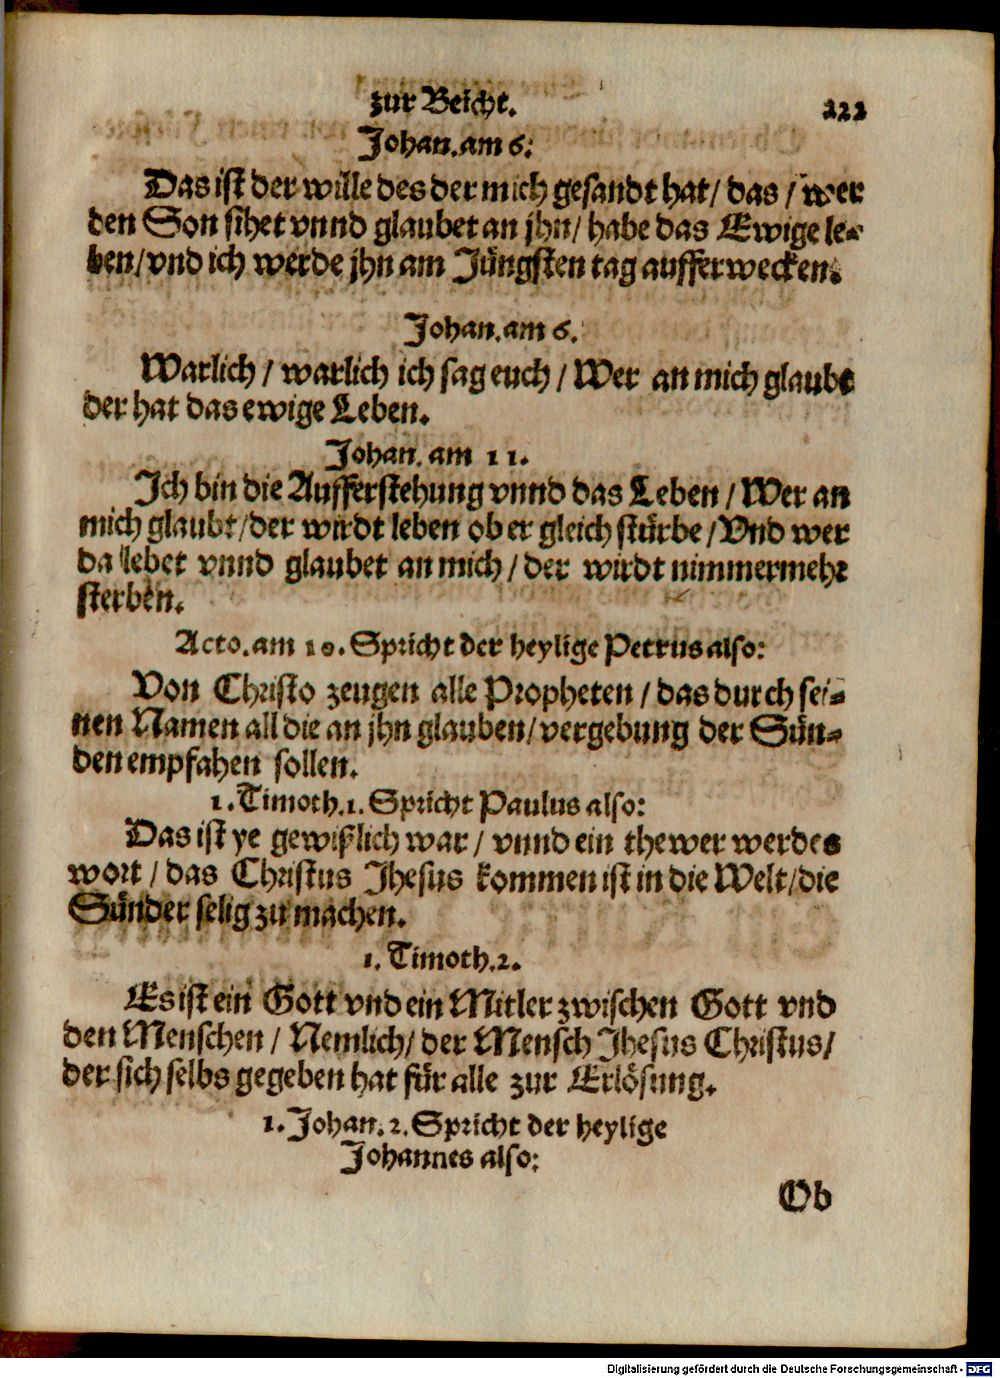 zur Beicht. 222
Johan. am 6.
Das ist der wille des der mich gesandt hat/ das / wer
den Son sihet vnnd glaubet an jhn/ habe das Ewige le-
ben/ vnd ich werde jhn am Jüngsten tag aufferwecken.
Johan. am 6.
Warlich / warlich ich sag euch / Wer an mich glaubt
der hat das ewige Leben.
Johan. am 11.
Ich bin die Aufferstehung vnnd das Leben / Wer an
mich glaubt/ der wirdt leben ob er gleich stürbe / Vnd wer
da lebet vnnd glaubet an mich / der wirdt nimmermehr
sterben.
Acto. am 10. Spricht der heylige Petrus also:
Von Christo zeugen alle Propheten / das durch sei-
nen Namen all die an jhn glauben/ vergebung der Sün-
den empfahen sollen.
1. Timoth. 1. Spricht Paulus also:
Das ist ye gewißlich war / vnnd ein thewer werdes
wort / das Christus Jhesus kommen ist in die Welt/ die
Sünder selig zu machen.
1. Timoth. 2.
Es ist ein Gott vnd ein Mitler zwischen Gott vnd
den Menschen / Nemlich/ der Mensch Jhesus Christus/
der sich selbs gegeben hat für alle zur Erlösung.
1. Johan. 2. Spricht der heylige
Johannes also:
Ob
Digitalisierung gefördert durch die Deutsche Forschungsgemeinschaft - DFG